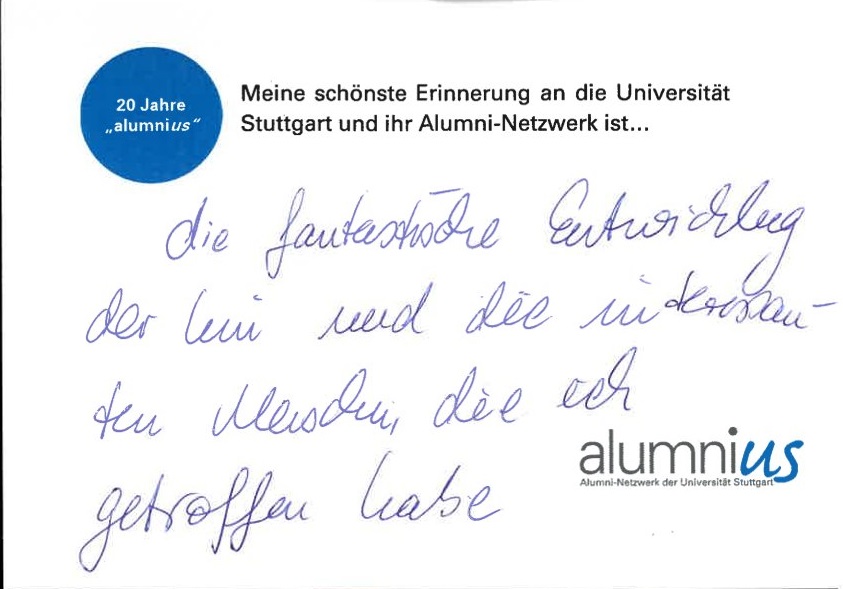 20 Jahre
„alumnius“
Meine schönste Erinnerung an die Universität
Stuttgart und ihr Alumni-Netzwerk ist...
die fantastische Entwicklung
der Uni und die interessan-
ten Menschen, die ich
getroffen habe
alumnius
Alumni-Netzwerk der Universität Stuttgart